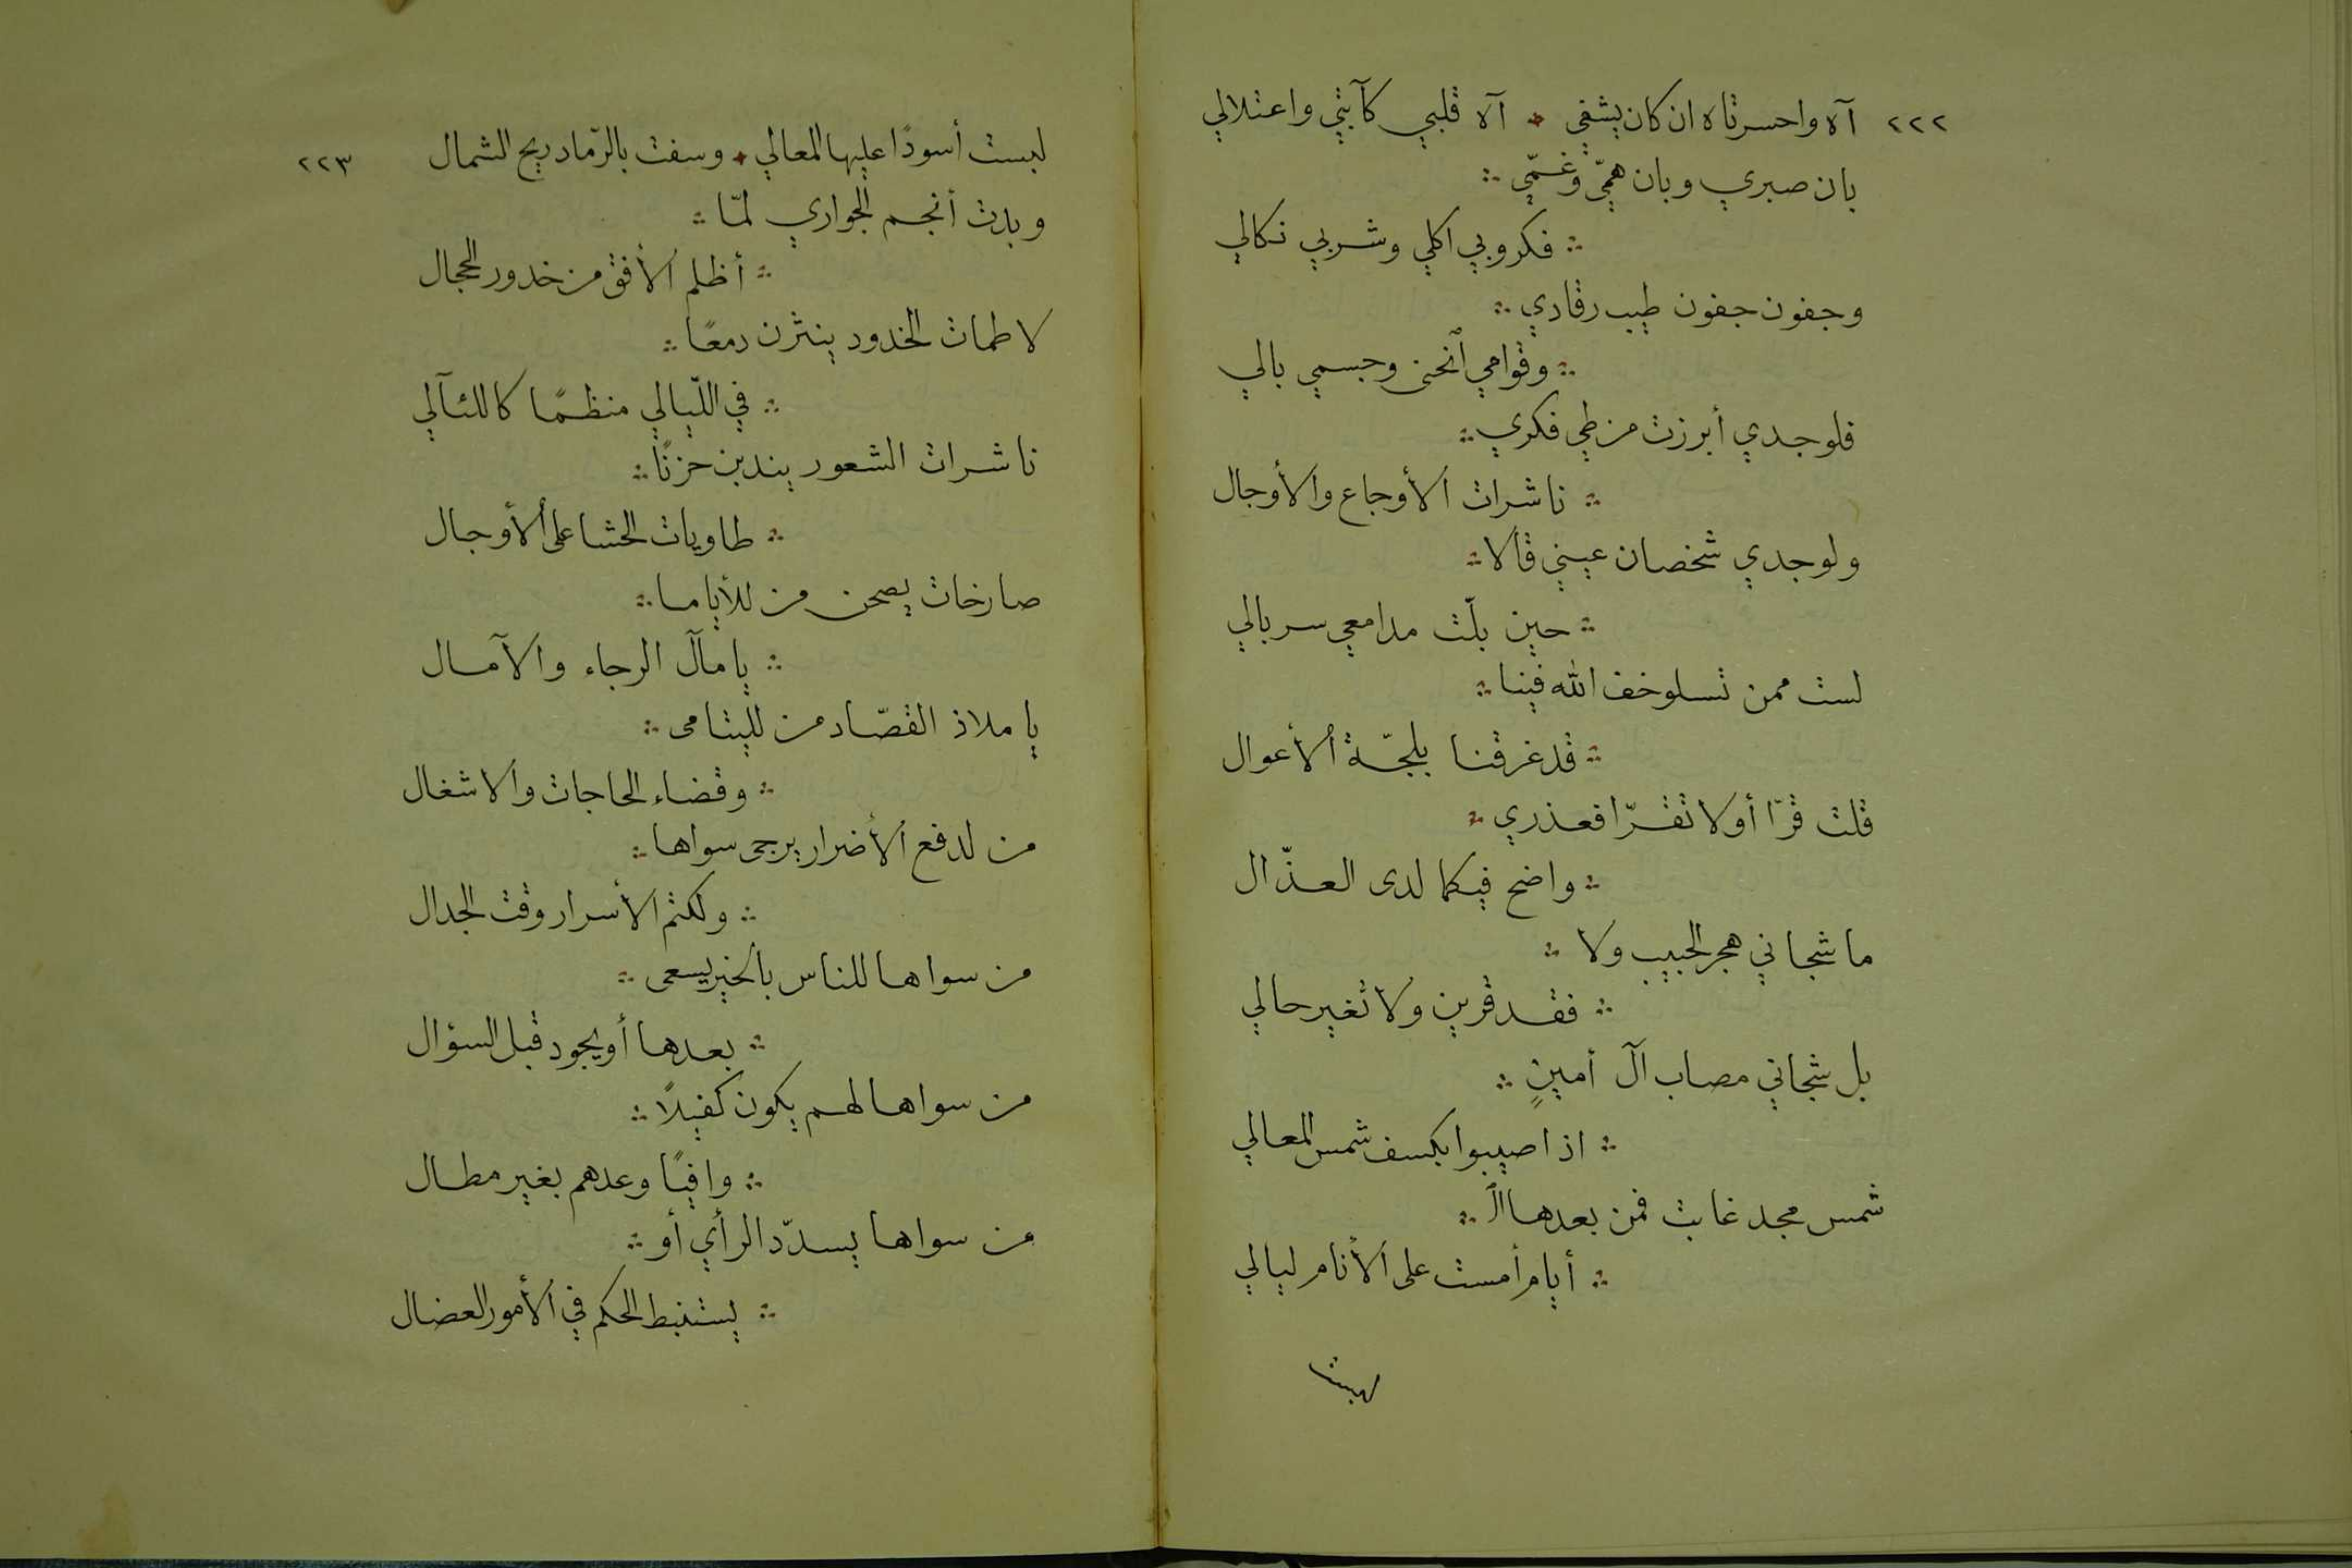 ٢٢٢ آه واحسرتاه ان كان يشفي ✦ آه قلبي كآبتي واعتلالي
بان صبري وبان همّي وغمّي ∴
∴ فكروبي اكلي وشربي نكالي
وجفون جفون طيب رقادي ∴
∴ وقوامي ٱنحنى وجسمي بالي
فلوجدي أبرزت من طي فكري ∴
∴ ناشرات الأوجاع والأوجال
ولوجدي شخصان عيني قالا ∴
∴ حين بلّت مدامعي سربالي
لست ممن تسلو خف الله فينا ∴
∴ قد غرقنا بلجّة الأعوال
قلت قرّا أولا تقرّا فعذري ∴
∴ واضح فيكما لدى العذّال
ما شجاني هجر الحبيب ولا ∴
∴ فقد قرين ولا تغير حالي
بل شجاني مصاب آل أمينٍ ∴
∴ اذا صيبوا بكسف شمس المعالي
شمس مجد غابت فمن بعدها ٱلـ ∴
∴ أيام أمست على الأنام ليالي
لبست أسودًا عليها المعالي ✦ وسفت بالرّماد ريح الشمال ٢٢٣
وبدت أنجم الجواري لمّا ∴
∴ أظلم الأفق من خدور الحجال
لاطمات الخدود ينثرن دمعًا ∴
∴ في اللّيالي منظمًا كاللئآلي
ناشرات الشعور يندبن حزنًا ∴
∴ طاويات الحشا على الأوجال
صارخات يصحن من للأياما ∴
∴ يا مآل الرجاء والآمال
يا ملاذ القصّاد من لليتامى ∴
∴ وقضاء الحاجات والاشغال
من لدفع الأضرار يرجى سواها ∴
∴ ولكتم الأسرار وقت الجدال
من سواها للناس بالخير يسعى ∴
∴ بعدها أو يجود قبل السؤال
من سواها لهم يكون كفيلاً ∴
∴ وافيًا وعدهم بغير مطال
من سواها يسدّد الرأي أو ∴
∴ يستنبط الحكم في الأمور العضال